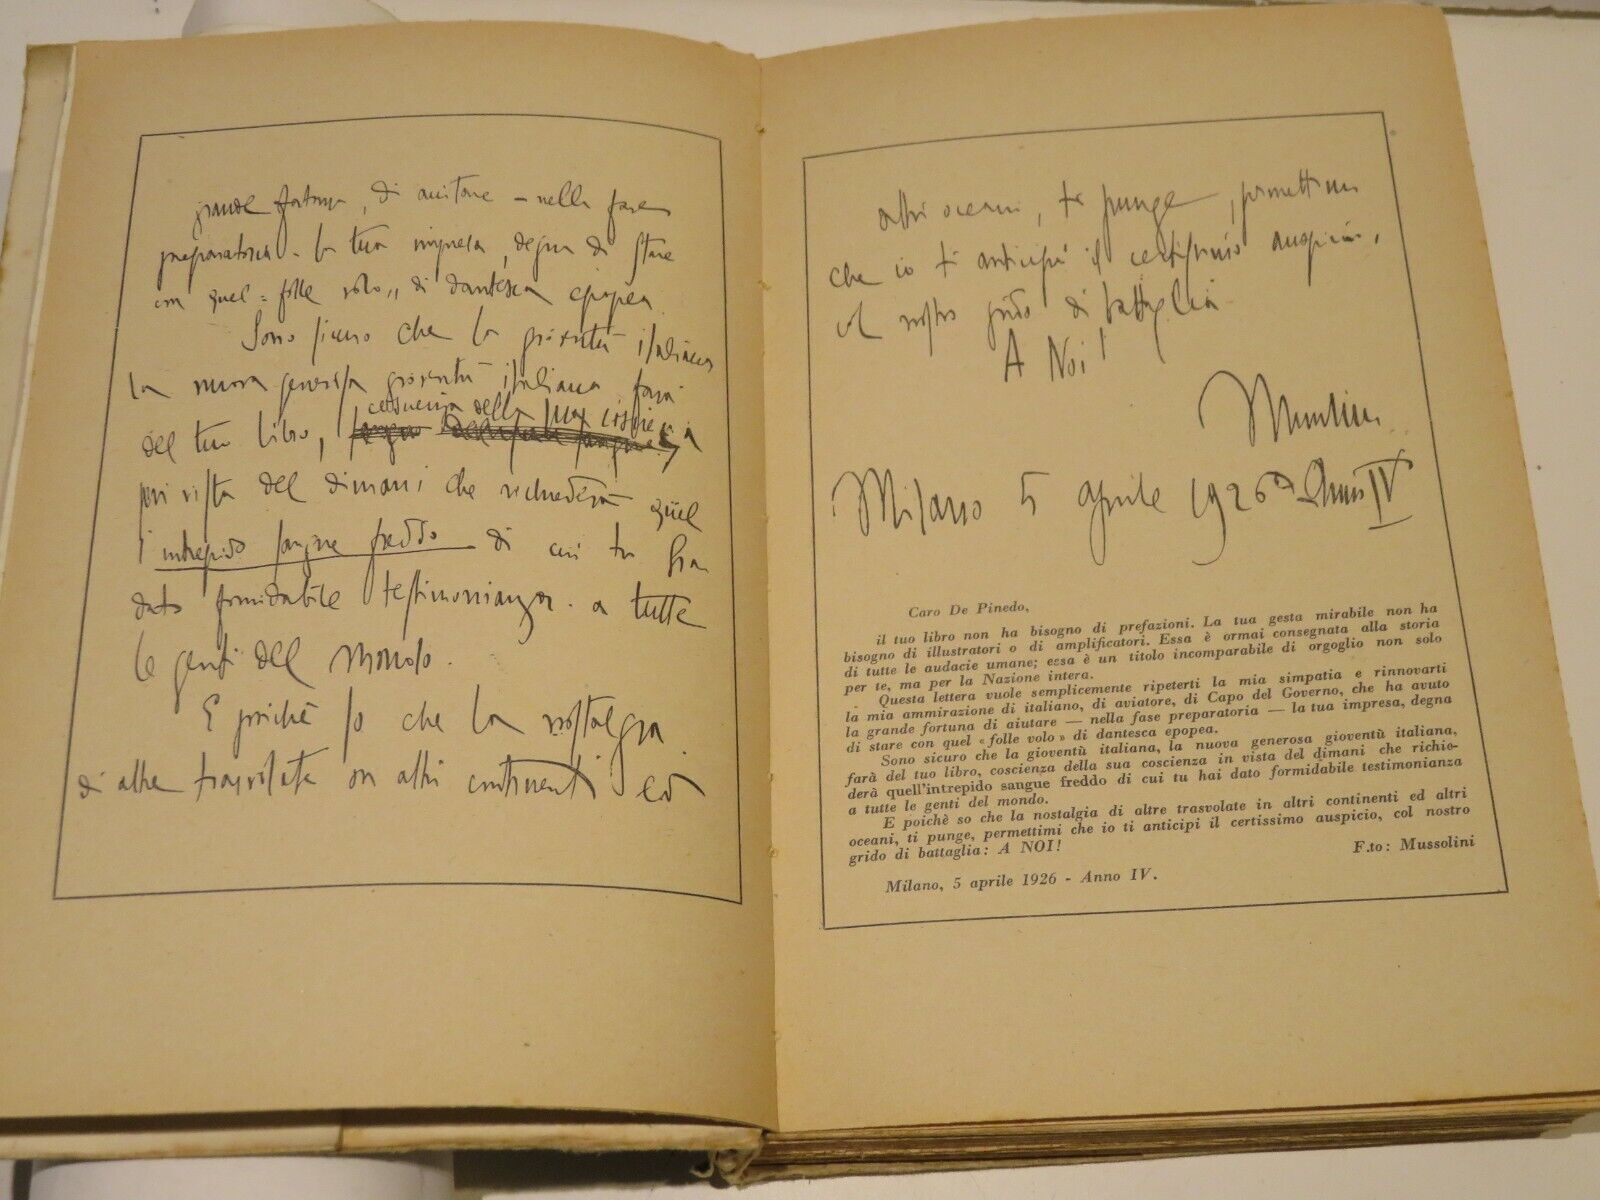 grande fortuna, di aiutare - nella fase
preparatoria - la tua impresa, degna di stare
con quel "folle volo„ di dantesca epopea.
Sono sicuro che la gioventù italiana
la nuova generosa gioventù italiana farà
coscienza della sua coscienza
del tuo libro,
in vista del dimani che richiederà quel
l'intrepido sangue freddo di cui tu hai
dato formidabile testimonianza a tutte
le genti del mondo.
E poichè so che la nostalgia
di altre trasvolate in altri continenti ed
altri oceani, ti punge, permettimi
che io ti anticipi il certissimo auspicio,
col nostro grido di battaglia
A Noi!
Mussolini
Milano 5 aprile 1926 Anno IV
Caro De Pinedo,
il tuo libro non ha bisogno di prefazioni. La tua gesta mirabile non ha
bisogno di illustratori o di amplificatori. Essa è ormai consegnata alla storia
di tutte le audacie umane; essa è un titolo incomparabile di orgoglio non solo
per te, ma per la Nazione intera.
Questa lettera vuole semplicemente ripeterti la mia simpatia e rinnovarti
la mia ammirazione di italiano, di aviatore, di Capo del Governo, che ha avuto
la grande fortuna di aiutare — nella fase preparatoria — la tua impresa, degna
di stare con quel «folle volo» di dantesca epopea.
Sono sicuro che la gioventù italiana, la nuova generosa gioventù italiana,
farà del tuo libro, coscienza della sua coscienza in vista del dimani che richie-
derà quell'intrepido sangue freddo di cui tu hai dato formidabile testimonianza
a tutte le genti del mondo.
E poichè so che la nostalgia di altre trasvolate in altri continenti ed altri
oceani, ti punge, permettimi che io ti anticipi il certissimo auspicio, col nostro
grido di battaglia: A NOI!
F.to: Mussolini
Milano, 5 aprile 1926 - Anno IV.